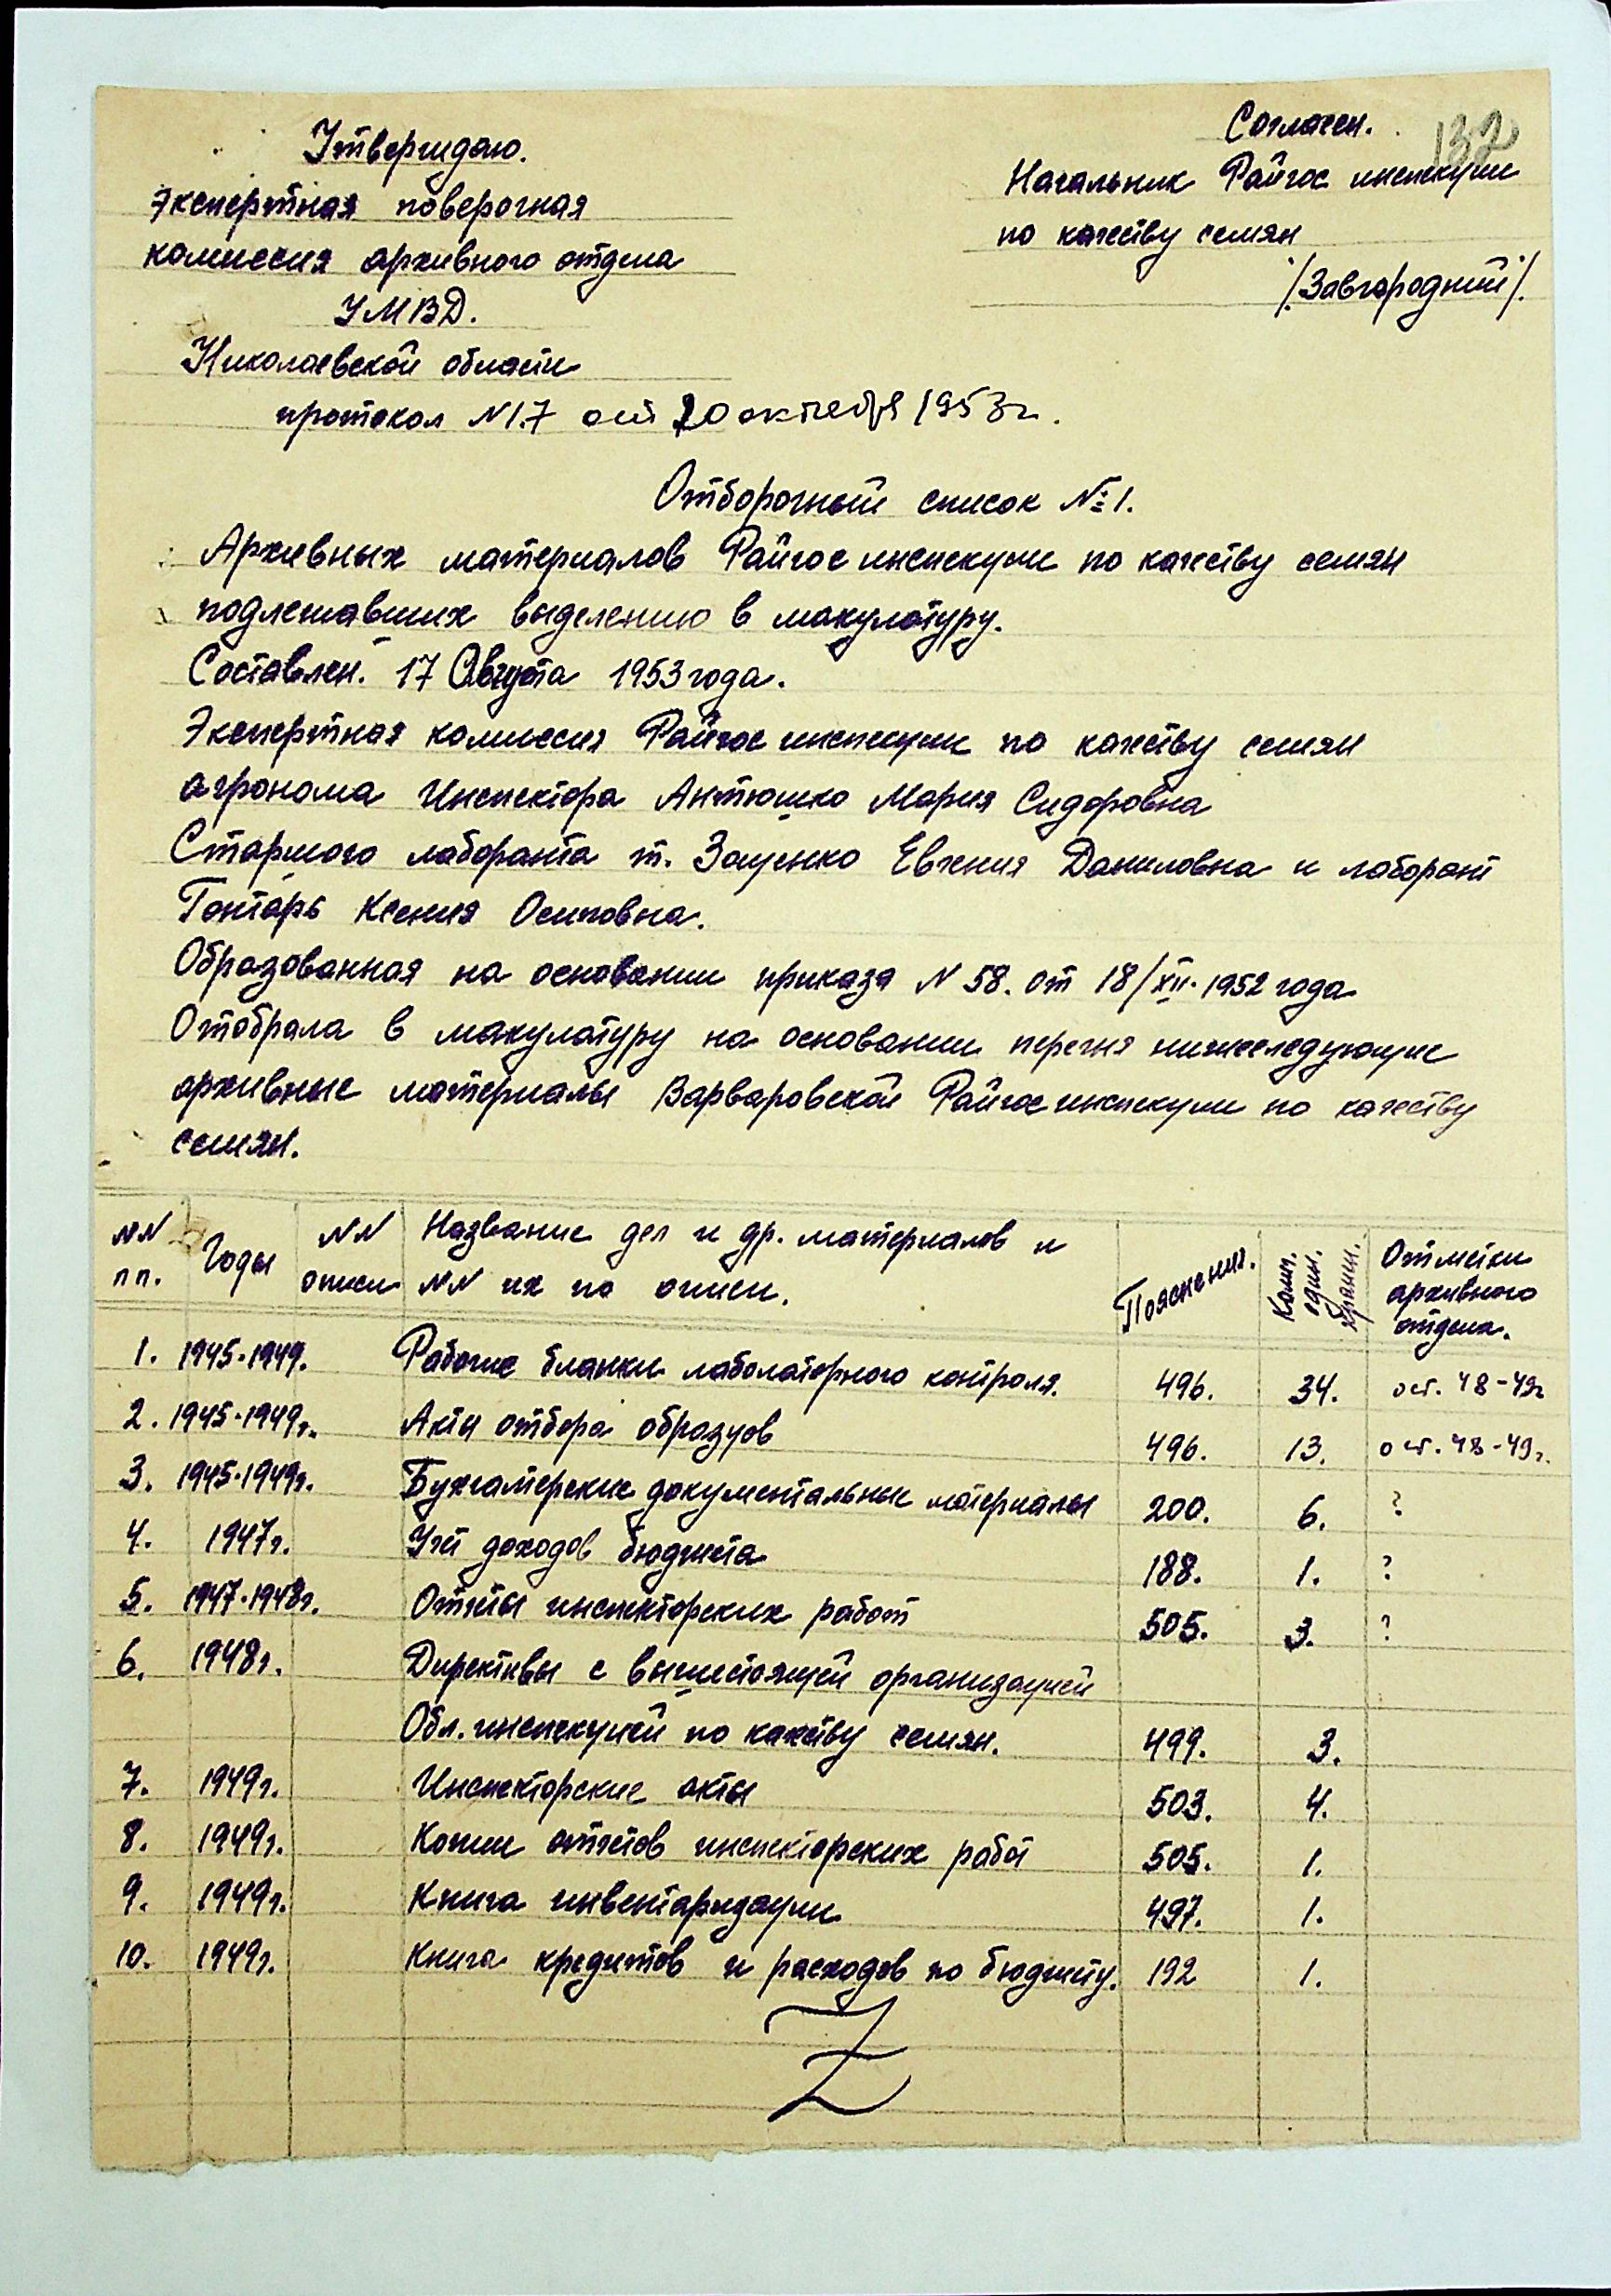 Утверждаю.
Экспертная поверочная
комиссия архивного отдела
УМВД.
Николаевской области
протокол №17 от 20 октября 1953г.
Согласен.
132
Начальник Райгос инспекции
по качеству семян
/Завгородний/.
Отборочный список №1.
Архивных материалов Райгос инспекции по качеству семян
подлежавших выделению в макулатуру.
Составлен. 17 Августа 1953 года.
Экспертная комиссия Райгос инспекции по качеству семян
агронома Инспектора Антюшко Мария Сидоровна
Старшого лаборанта т. Зощенко Евгения Даниловна и лаборант
Гонтарь Ксения Осиповна.
Образованная на основании приказа N 58. от 18/XII. 1952 года
Отобрала в макулатуру на основании перечня нижеследующие
архивные материалы Варваровской Райгос инспекции по качеству
семян.
NN пп. Годы NN описи Название дел и др. материалов и NN их по описи. Пояснения. Колич. един. хранен. Отметки архивного отдела.
1. 1945-1949. Рабочие бланки лаболаторного контроля. 496. 34. ост. 48-49г
2. 1945-1949г. Акты отбора образцов 496. 13. ост. 48-49г.
3. 1945-1949г. Бухгалтерские документальные материалы 200. 6. ?
4. 1947г. Учёт доходов бюджета 188. 1. ?
5. 1947-1948г. Отчёты инспекторских работ 505. 3. ?
6. 1948г. Директивы с вышестоящей организацией
Обл. инспекцией по качеству семян. 499. 3.
7. 1949г. Инспекторские акты 503. 4.
8. 1949г. Копии отчётов инспекторских работ 505. 1.
9. 1949г. Книга инвентаризации 497. 1.
10. 1949г. Книга кредитов и расходов по бюджету. 192 1.